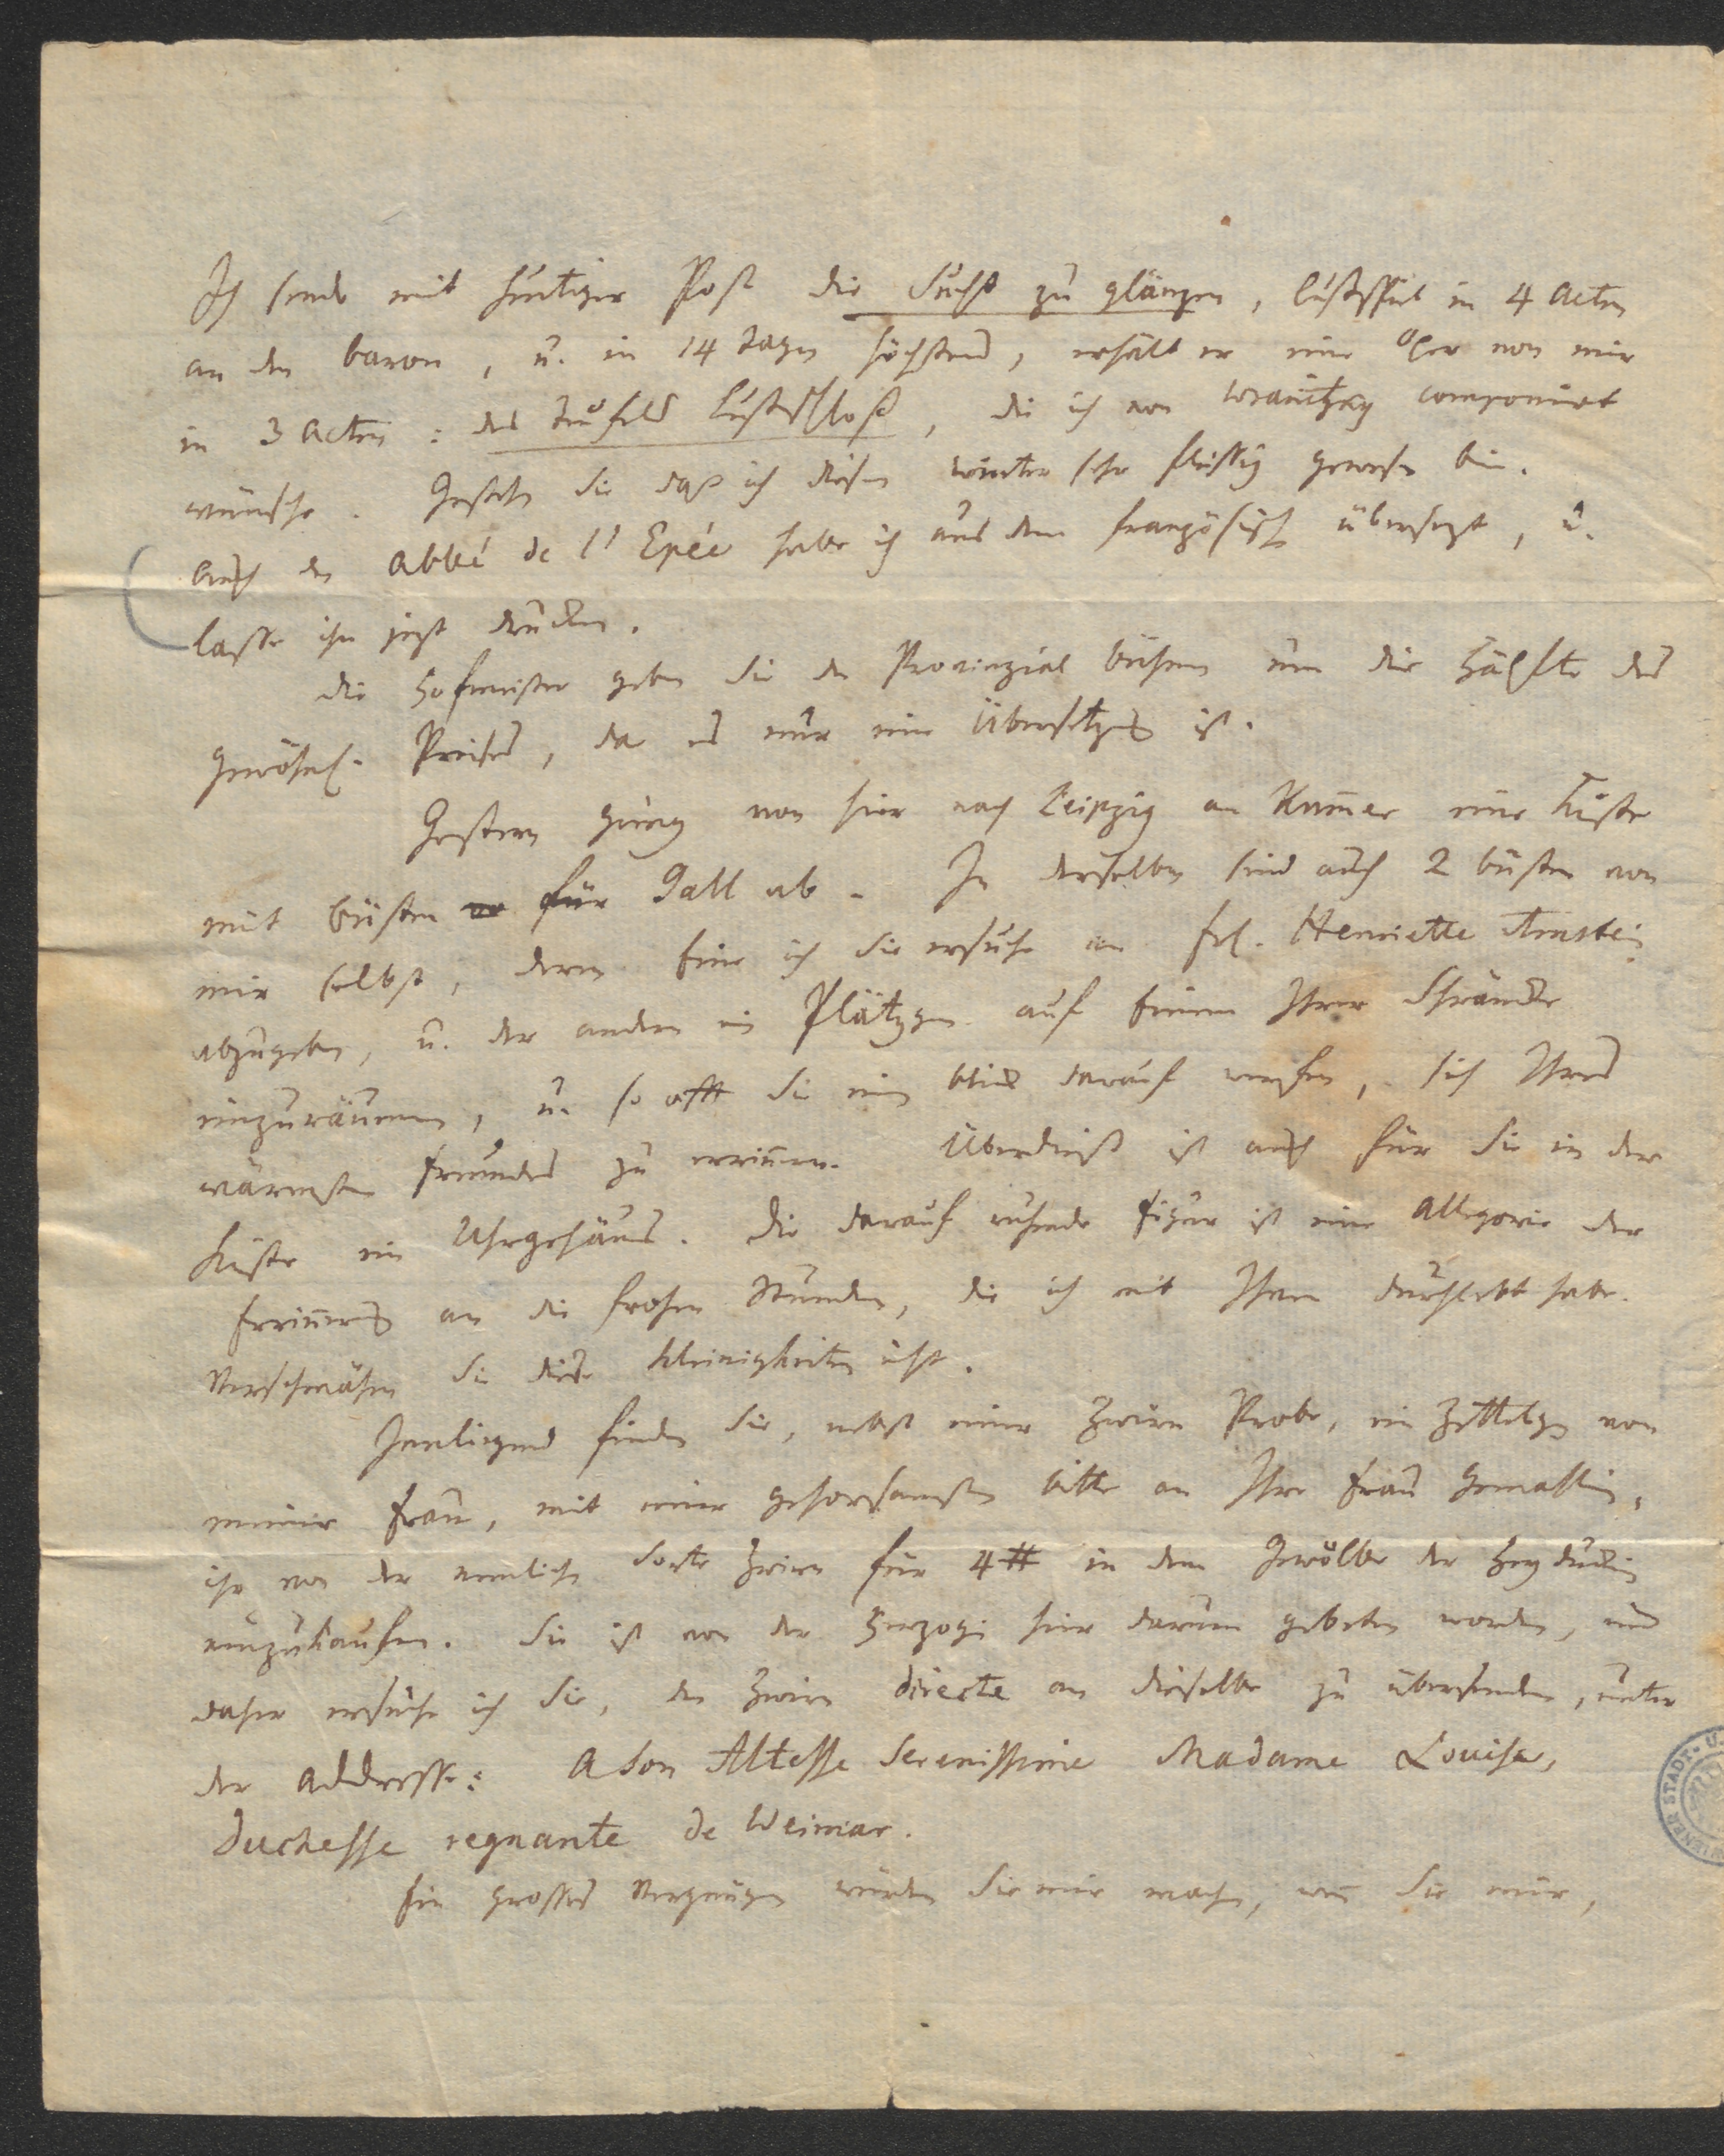 Ich sende mit heutiger Post die Sucht zu glänzen, Lustspiel in 4 Acten
an den Baron, u. in 14 Tagen höchstens, erhält er eine Oper von mir
in 3 Acten: des Teufels Lustschloß, die ich von Wranitzky componirt
wünsche. Gestehn Sie daß ich diesen Winter sehr fleissig gewesen bin.
Auch den Abbé de l'Epée habe ich aus dem französisch übersezt, u.
lasse ihn jezt drucken.
Die Hofmeister geben Sie den Provinzial Bühnen um die Hälfte des
gewöhnl. Preises, da es nur eine Übersetzung ist.
Gestern ging von hier nach Leipzig an Kummer eine Kiste
mit Büsten für Gall ab. In derselben sind auch 2 Büsten von
mir selbst, deren Eine ich Sie ersuche an Frl. Henriette Arnstein
abzugeben, u. der andern ein Plätzgen auf Einem Ihrer Schränke
einzuräumen, u. so oft Sie einen Blick darauf werfen, sich Ihres
wärmsten Freundes zu erinnern. Überdieß ist auch für Sie in der
Kiste ein Uhrgehäus. Die darauf ruhende Figur ist eine Allegorie der
Erinnerung an die frohen Stunden, die ich mit Ihnen durchlebt habe.
Verschmähen Sie diese Kleinigkeiten nicht.
Innliegend finden Sie, nebst einer Zwirn Probe, ein Zettelgen von
meiner Frau, mit einer gehorsamsten Bitte an Ihre Frau Gemahlin,
ihr von der nemlichen Sorte Zwirn für 4 # in dem Gewölbe der Heyduckin
einzukaufen. Sie ist von der Herzogin hier darum gebeten worden, und
daher ersuche ich Sie, den Zwirn directe an dieselbe zu übersenden, unter
der Addresse: A Son Altesse Serenissime Madame Louise,
Duchesse regnante de Weimar.
Ein grosses Vergnügen würden Sie mir machen, wenn Sie mir,
WIENER STADT-U.